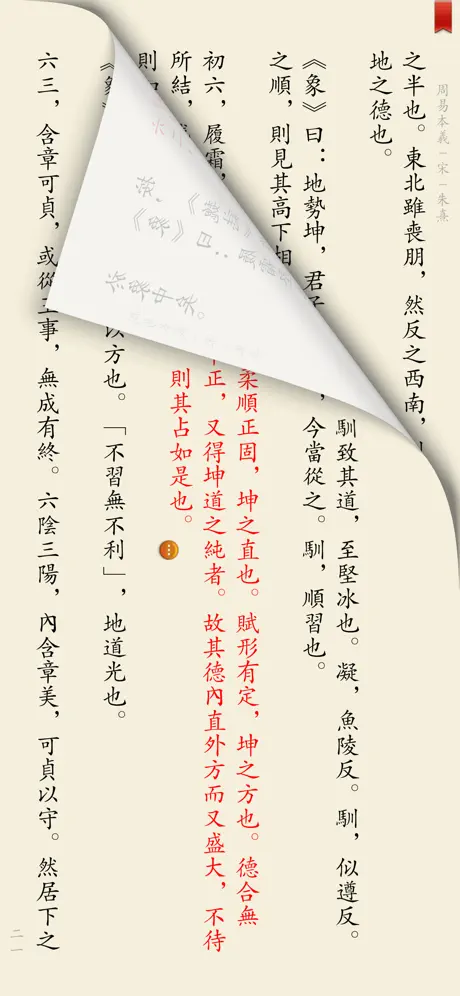 周易本義－宋－朱熹
之半也。東北雖喪朋，然反之西南，
地之德也。
馴致其道，至堅冰也。凝，魚陵反。馴，似遵反。
《象》曰：地勢坤，君子
，今當從之。馴，順習也。
之順，則見其高下相
柔順正固，坤之直也。賦形有定，坤之方也。德合無
初六，履霜，
正，又得坤道之純者。故其德內直外方而又盛大，不待
所結，
則其占如是也。
則
《象》
以方也。「不習無不利」，地道光也。
六三，含章可貞，或從王事，無成有終。六陰三陽，內含章美，可貞以守。然居下之
二一